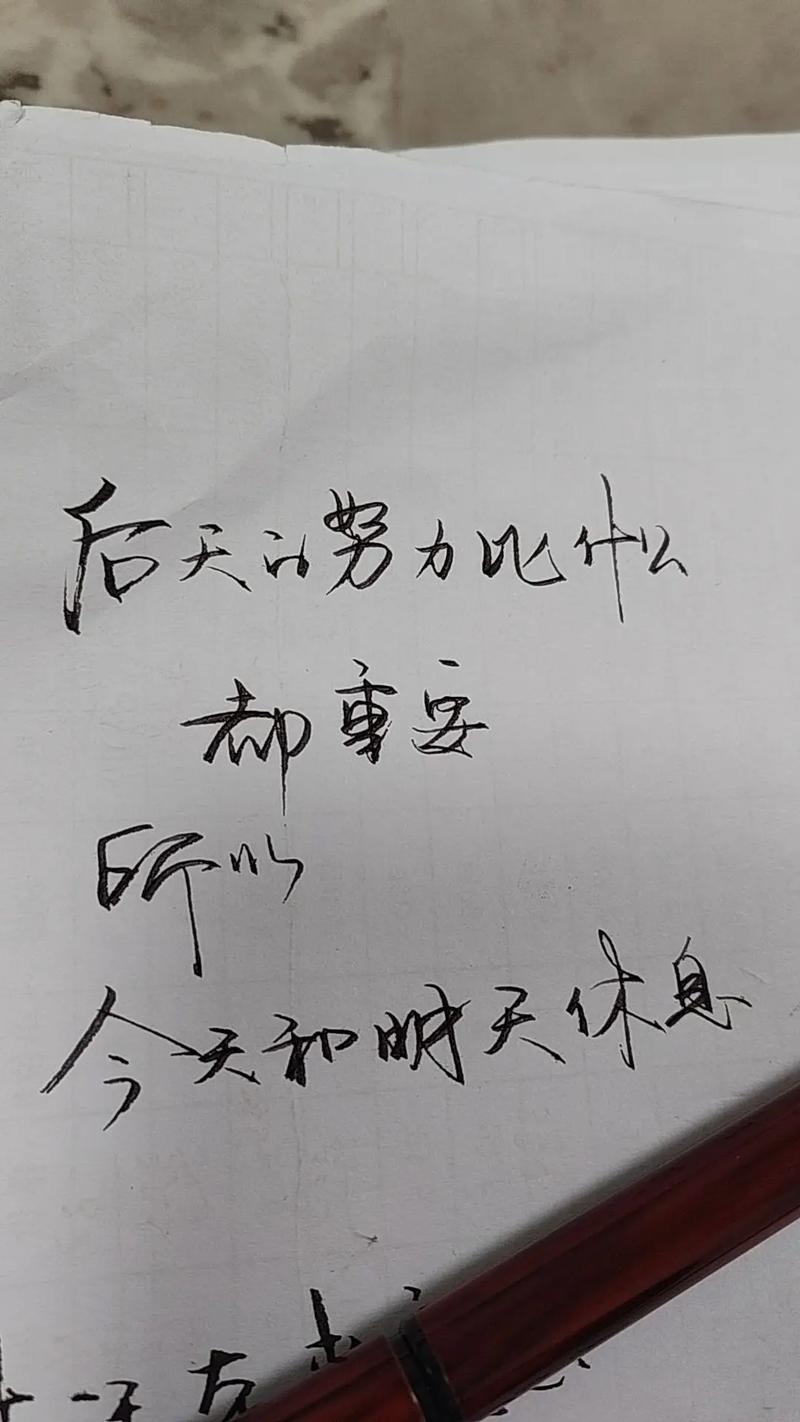 后天的努力比什么
都重要
所以
今天和明天休息